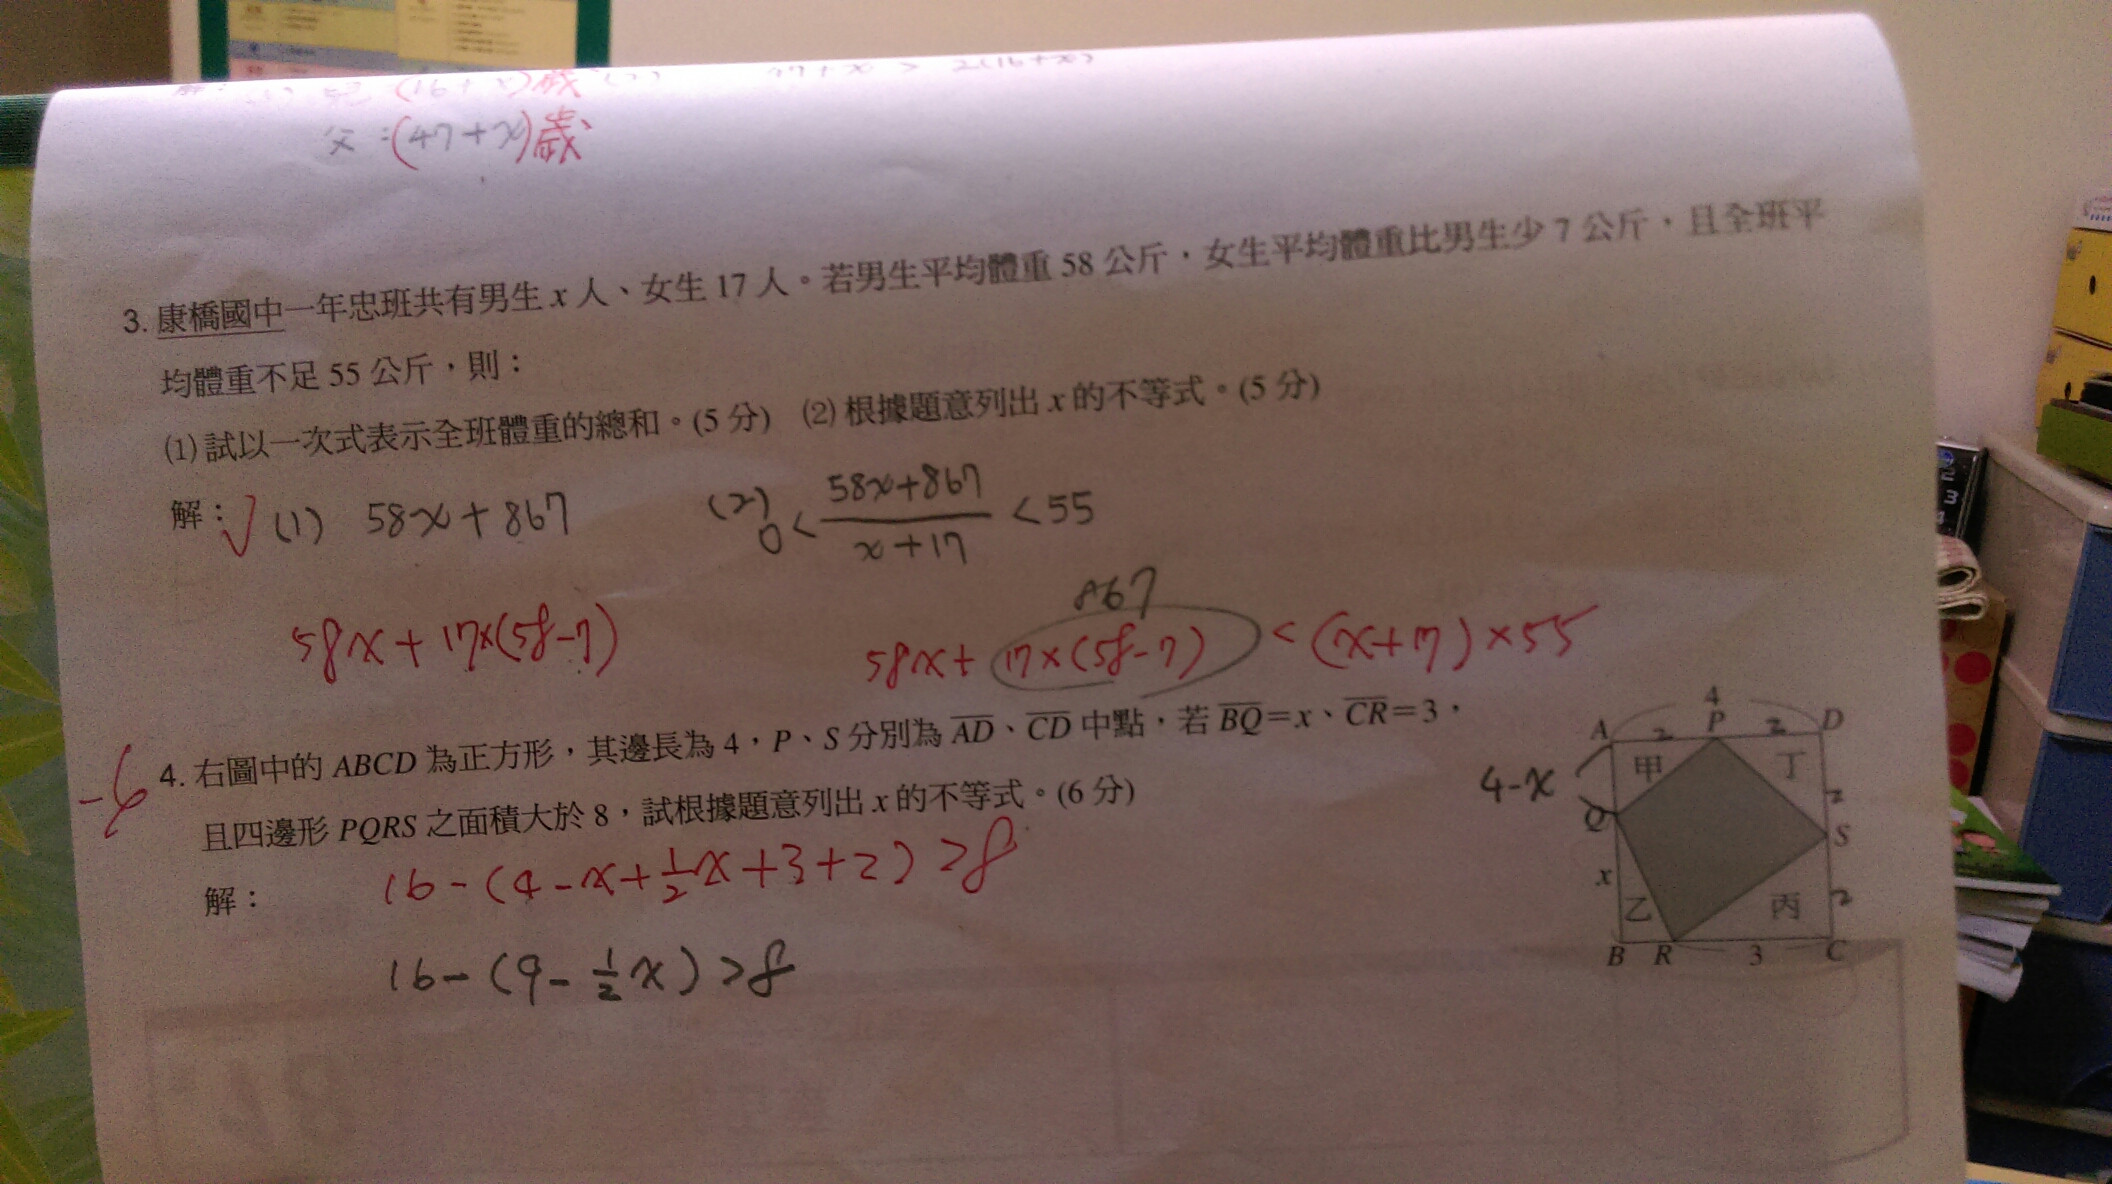 (16+x)歲 (2) 47+x > 2(16+x)
父:(47+x)歲
3. 康橋國中一年忠班共有男生 x 人、女生 17 人。若男生平均體重 58 公斤,女生平均體重比男生少 7 公斤,且全班平
均體重不足 55 公斤,則:
(1) 試以一次式表示全班體重的總和。(5 分) (2) 根據題意列出 x 的不等式。(5 分)
解: (1) 58x+867 (2) 0< (58x+867)/(x+17) <55
867
58x+17×(58-7) 58x+17×(58-7) < (x+17)×55
-6
4. 右圖中的 ABCD 為正方形,其邊長為 4,P、S 分別為 A̅D̅、C̅D̅ 中點,若 B̅Q̅=x、C̅R̅=3,
且四邊形 PQRS 之面積大於 8,試根據題意列出 x 的不等式。(6 分)
解: 16-(4-x+½x+3+2)>8
16-(9-½x)>8
4
A 2 P 2 D
甲 丁
4-x 2
Q S
x 2
乙 丙
B R 3 C